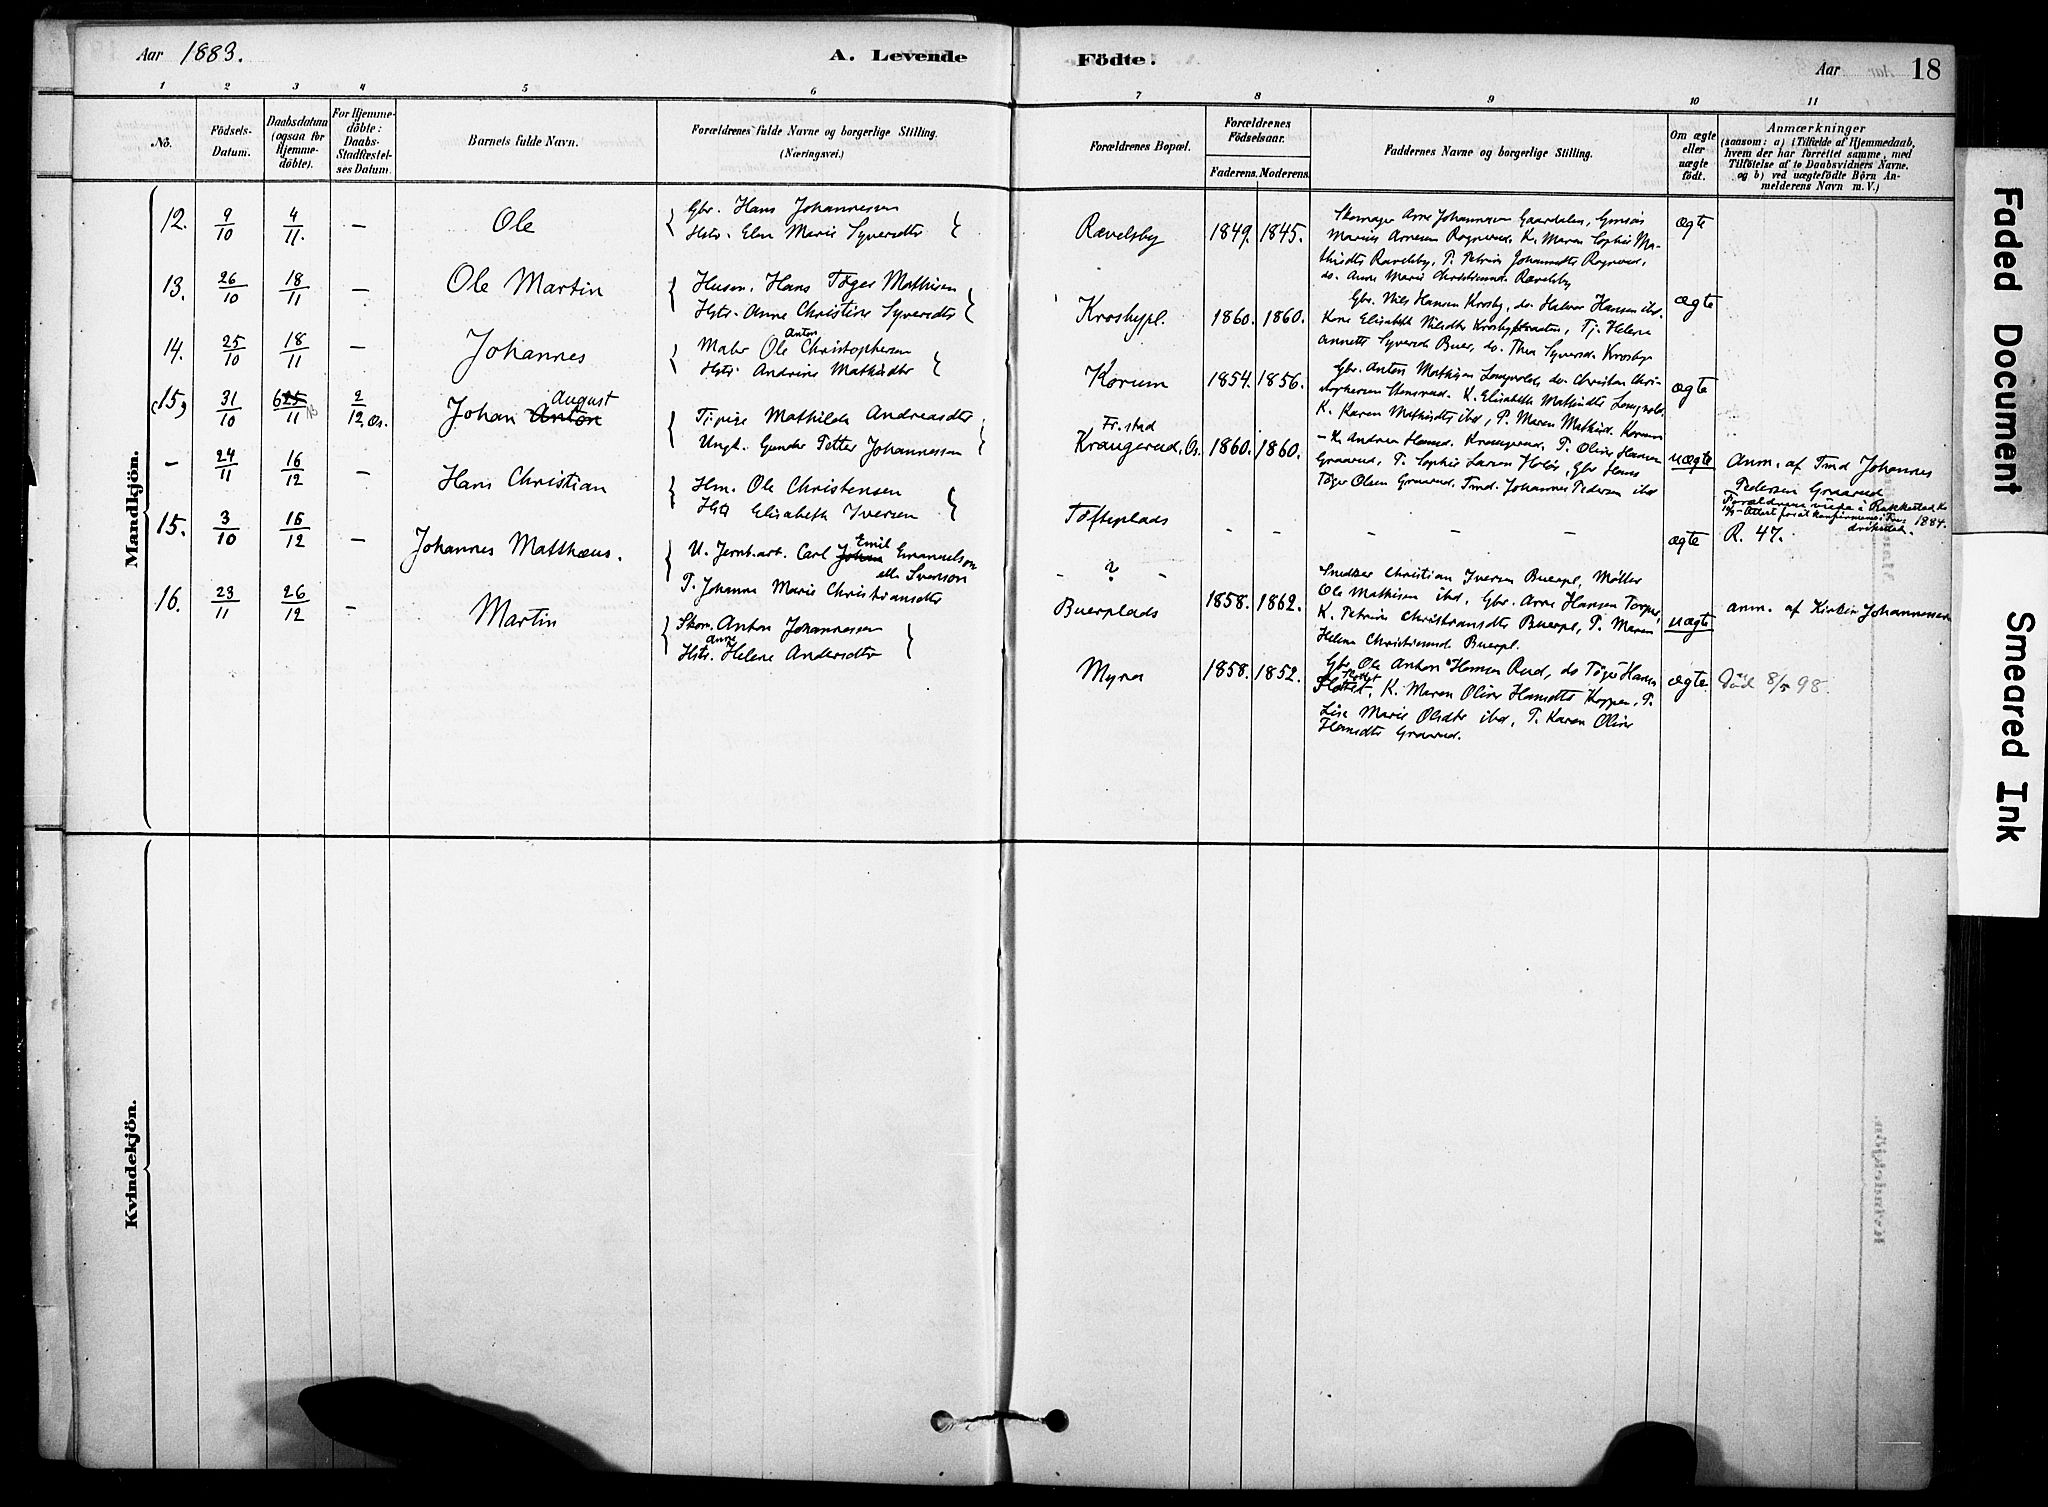 Aar 1883.
A. Levende Födte.
Aar 18
1 2 3 4 5 6 7 8 9 10 11
No.
Födsels-
Datum.
Daabsdatum
(ogsaa for
Hjemme-
döbte).
For Hjemme-
döbte:
Daabs-
Stadfæstel-
ses Datum.
Barnets fulde Navn.
Forældrenes fulde Navne og borgerlige Stilling.
(Næringsvei.)
Forældrenes Bopæl.
Forældrenes
Födselsaar.
Faderens. Moderens.
Faddernes Navne og borgerlige Stilling.
Om ægte
eller
uægte
födt.
Anmærkninger
(saasom: a) i Tilfælde af Hjemmedaab,
hvem der har forrettet samme, med
Tilföielse af to Daabsvidners Navne.
og b) ved uægtefödte Börn An-
melderens Navn m. V.)
Mandkjön.
12. 9/10 4/11. — Ole
Gbr. Hans Johannessen
Hstr. Elen Marie Syversdtr
Rævelsby 1849. 1845.
Skomager Arne Johannesen Gaardalen,
Marius Arnesen Ragnerud, K. Maren Sophie Ma-
thisdts Rævelsby, P. Petrine Johannedts Ragnerud,
do. Anne Marie Rævelsby
ægte
13. 26/10 18/11 — Ole Martin
Husm. Hans Töger Mathisen
Hstr. Anne Christine Syversdtr
Krosbypl. 1860. 1860.
Gbr. Nils Hansen Krosby, do. Halvor Hansen ibd.
Kone Elisabeth Nilsdtr Krosbybraaten, Tj. Helene
Annette Syversd. Buer, do. Thea Syversd. Krosby
ægte
14. 25/10 18/11 — Johannes
Maler Ole Anton Christophersen
Hstr. Andrine Mathisdtr
Korum 1854. 1856.
Gbr. Anton Mathisen do. Christian Chri-
stophersen K. Elisabeth Mathisdts
K. Karen Mathisdts ibd, P. Maren Mathisd. Korum
ægte
(15) 31/10 625/11 2/12 Os. Johan Anton August
Tj.pige Mathilde Andreasdtr
Ungk. Gunder Petter Johannessen
Fr.stad
Kraugerud, Os. 1860. 1860.
— K. Andrea Hansd. Kraugerud, P. Oline Hansen
Graarud, P. Sophie Larsen Gbr Hans
Töger Olsen Graarud, Tmd. Johannes Pedersen ibd
uægte
Anm. af Tmd Johannes
Pedersen Graarud
Forældrene viede i Rakkestad K.
1884.
— 24/11 16/12 — Hans Christian
Hm. Ole Christensen
Hstr Elisabeth Iversen
Töfteplads — — — —
ægte R. 47.
15. 3/10 16/12 — Johannes Matthæus.
U. Jernb.arb. Carl Johan Emil Emanuelson
elle Svenson
P. Johanne Marie Christiansdtr
— ? —
Buerplads 1858. 1862.
Snedker Christian Iversen Buerpl, Möller
Ole Mathisen ibd, Gbr. Arne Hansen Torper,
K. Petrine Christiansdtr Buerpl, P. Maren
Helene Christiansd. Buerpl.
uægte
anm. af Johannessen
16. 23/11 26/12 — Martin
Skom. Anton Johannessen
Hstr. Anne Helene Andersdtr
Myra 1858. 1852.
Gbr. Ole Anton Hansen Rud, do Töger Hansen
K. Maren Oline Hansdtr Koppen, P.
Lise Marie Olsdtr ibd, P. Karen Oline
Hansdtr Graarud.
ægte. Död 8/5 98.
Kvindekjön.
Faded Document
Smeared Ink